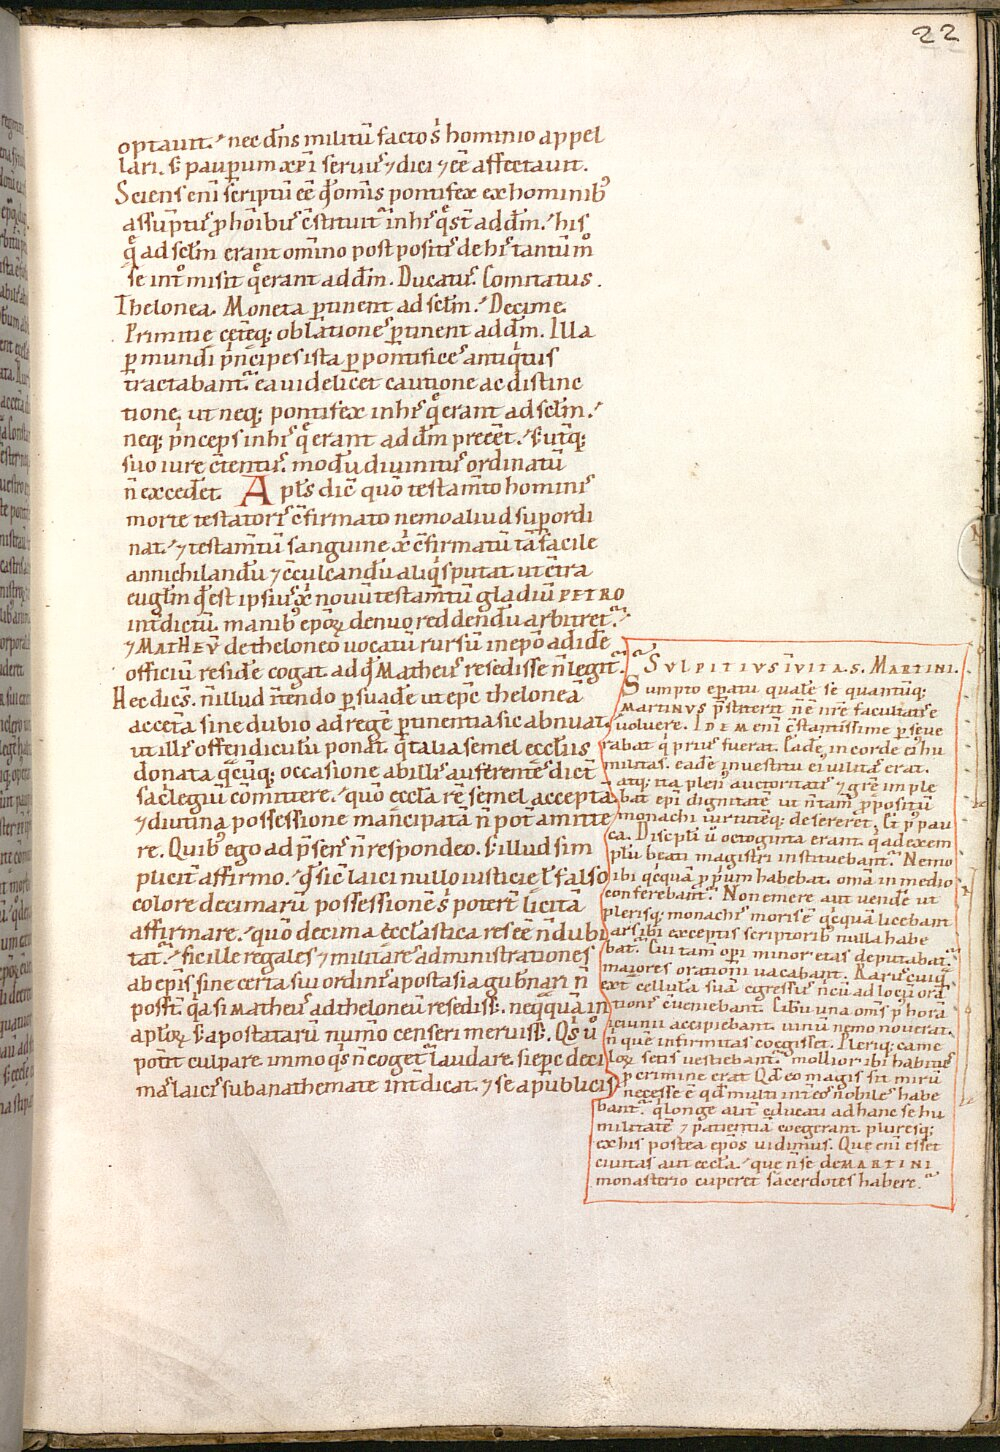 22
optauit. nec dn̄s militū factos̓ hominio appel
lari. s; paup̄um xp̄i seruus ⁊ dici ⁊ eē affectauit.
Sciens eni scriptū eē qđ omīs pontifex ex hominib;
assūptus p hoībus c̄stituit̄ in his q̄ st̄ ad dm̄. his
q̄ ad sclm̄ erant omīno postpositis de his tantum̄
se int̓misit q̄ erant ad dm̄. Ducatus. Comitatus.
Thelonea. Moneta ꝑtinent ad sclm̄. Decime.
Primitie cet̄eq; oblationes ꝑtinent ad dm̄. Illa
ꝑ mundi pͥncipes ista ꝑ pontifices antiqͥtus
tractabant̄. ea uidelicet cautione ac distinc
tione. ut neq; pontifex in his q̄ erant ad sclm̄.
neq; pͥnceps in his q̄ erant ad dm̄ preēet. s; ut̓q;
suo iure c̄tentus. modū diuinitus ordinatū
n̄ excedet. Apl̄s dic̄ quō testam̄to hominis
morte testatoris c̄firmato nemo aliud sup̄ordi
nat. ⁊ testam̄tū sanguine xp̄i c̄firmatū tā facile
annichilandū ⁊ c̄culcandū aliqͥs putat. ut c̄tra
euglm̄ qđ est ipsius xp̄i nouū testam̄tū gladiū PETRO
int̓dictū. manib; ep̄oꝝ denuo reddendū arbitret̄.
⁊ MATHEV̄ de theloneo uocatū rursū in ep̄o adide
officiū reside cogat ad qđ Matheus resedisse n̄ legit̄.
Hec dicēs. n̄ illud īt̄endo ꝑsuade ut ep̄c thelonea
accepta sine dubio ad regē ꝑtinentia sic abnuat.
ut illis offendiculū ponat. qͥ talia semel eccl̄iis
donata qͣcūq; occasione ab illis auferentes dic̄t
sac̓legiū cōmittere. quō eccl̄a rē semel acceptā
⁊ diuina possessione mancipatā n̄ pot̄ amitte
re. Quib; ego ad p̄sens n̄ respondeo. s; illud sim
plicit̓ affirmo. qđ sic̄ laici nullo iusticie ul̓ falso
colore decimarū possessionē s̓ poter̄t licitā
affirmare. quō decima eccl̄astica res eē n̄ dubi
tat̄. sic ille regales ⁊ militares administrationes
ab ep̄is sine certa sui ordinis apostasia gub̄nari n̄
posst̄. qͣsi matheus ad theloneū resediss;. neqͣquā in
apl̄oꝝ s; apostatarū num̓o censeri meruiss;. Qͦs ū
pot̓it culpare. immo qͥs n̄ coget̄ laudare si ep̄c deci
mas laicis sub anathemate int̓dicat. ⁊ se a publicis
SVLPITIVS ĪVITA. S. MARTINI.
Sumpto ep̄atu quale se quantūq;
MARTINVS p̄stiterit n̄ ē nr̄e facultatis e
uoluere. IDEM eni c̄stantissime ꝑseue
rabat qͥ prius fuerat. Eadē in corde eius hu
militas. eadē in uestitu ei uilitas erat.
atq; ita plenus auctoritatis ⁊ gr̄e imple
bat ep̄i dignitatē ut n̄ tam̄ p̱positū
monachi uirtutēq; desereret, Et p̱ pau
ca. Discipli ū octoginta erant. q ad exem
plū beati magistri instituebant̄. Nemo
ibi qͣcquā p̱pͥum habebat. om̄a in mediō
conferebant̄. Non emere aut uende ut
plerisq; monachis moris ē qͥcquā licebant
ars ibi exceptis scriptorib; nulla habe
bat̄. Cui tam̄ op̓i minor etas deputabat̄.
maiores orationi uacabant. Rarus cuiqͣ
ext̓ cellulā suā egressus n̄ cū ad locū ora
tionis c̄ueniebant. Cibū una om̄s p̱ horā
ieiunii accipiebant. uinū nemo nouerat.
n̄ quē infirmitas coegisset. Pleriq; came
loꝝ setis uestiebant̄. mollior ibi habitus
p crimine erat. Qđ eo magis sit mirū
necesse ē qđ multi int̓ eos nobiles habe
bant̄. qͥ longe alit̓ educati ad hanc se hu
militatē ⁊ patientiā coegerant. pluresq;
ex his postea ep̄os uidimus. Que eni esset
ciuitas aut eccl̄a. que n̄ se de MARTINI
monasterio cuperet sacerdotes habere.